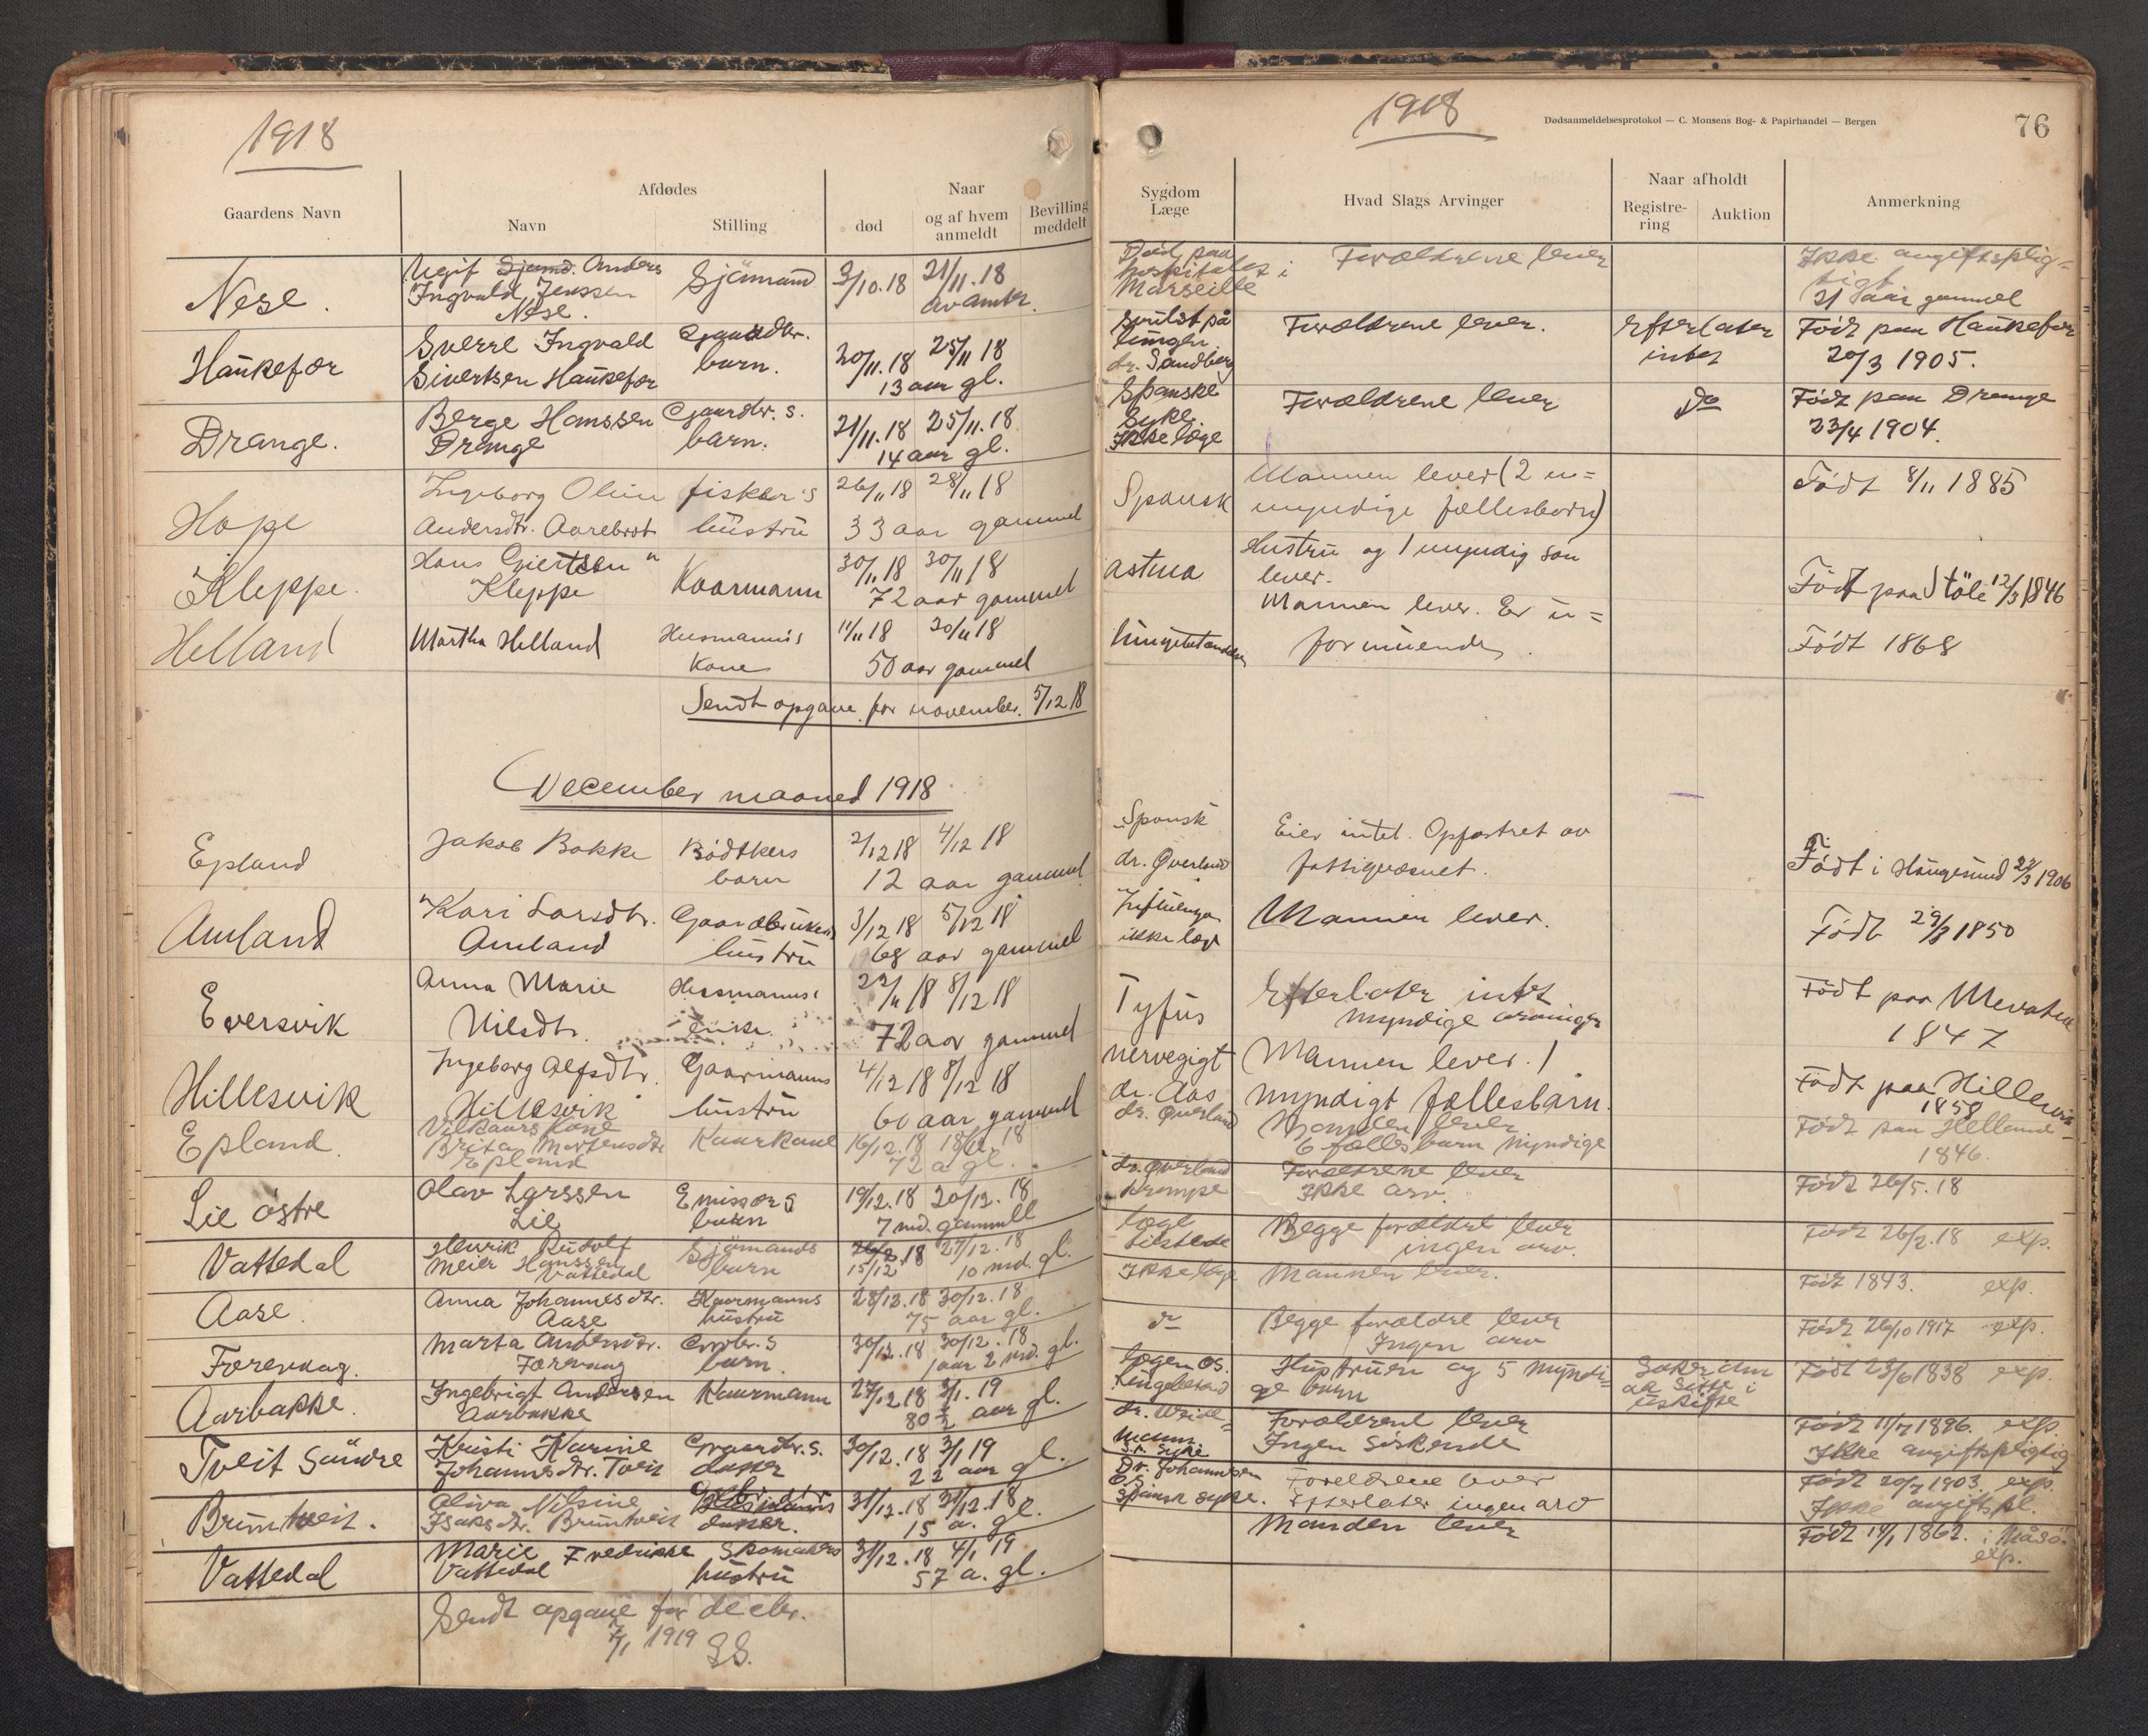 1918
Gaardens Navn
Afdødes
Navn
Stilling
Naar
død
og af hvem anmeldt
Bevilling meddelt
Nese.
Ugift Sjømd. Anders
Ingvald Jenssen
Nese.
Sjömand
3/10.18 21/11.18
av amtet
Haukefær
Sverre Ingvald
Sivertsen Haukefær
Gaardbr.
barn.
20/11.18 25/11 18
13 aar gl.
Drange.
Berge Hanssen
Drange
Gaardbr. s.
barn.
21/11.18 25/11.18
14 aar gl.
Hope
Ingeborg Oline
Andersdtr. Aarebrot
fisker's
hustru
26/11 18 28/11 18
33 aar gammel
Kleppe.
Hans Giertsen
Kleppe
Kaarmann
30/11 18 30/11 18
72 aar gammel
Helland
Martha Helland
Husmannis
Kone
11/11 18 30/11 18
50 aar gammel
Sendt opgave for november. 5/12 18
December maaned 1918
Epland
Jakob Bakke
Bødtkers
barn
2/12 18 4/12 18
12 aar gammel
Amland
Kari Larsdtr.
Amland
Gaardbrukers
hustru
3/12 18 5/12 18
68 aar gammel
Eversvik
Anna Marie
Nilsdtr.
Husmanns
enke
22/11 18 8/12 18
72 aar gammel
Hillesvik
Ingeborg Alfsdtr.
Hillesvik
Gaarmanns
hustru
4/12 18 8/12 18
60 aar gammel
Epland.
Vilkaars kone
Brita Mortensdtr
Epland
Kaarkone
16/12.18 18/12.18
72 a gl.
Lie østre
Olav Larssen
Lie
Emissær s
barn
19/12.18 20/12.18
7 md. gammell
Vattedal
Henrik Rudolf
Meier Hanssen
Vattedal
Sjömands
barn
18 27/12.18
15/12 10 md. gl.
Aase.
Anna Johannesdtr.
Aase
Kaarmanns
hustru
28/12.18 30/12.18
75 aar gl.
Førevaag.
Marta Andersdtr.
Førevaag
barn.
30/12.18 30/12.18
1 aar 2 md. gl.
Aarbakke.
Ingebrigt Andersen
Aarbakke
Kaarmann
27/12.18 3/1.19
80 1/2 aar gl.
Tveit Søndre
Kristi Karine
Johannesdtr. Tveit
Gaardbr. s.
datter
30/12.18 3/1 19
22 aar gl.
Brimtveit.
Oliva Nilsine
Isaksdtr. Brimtveit
datter.
31/12.18 31/12.18
15 a. gl.
Vattedal
Marie Fredrikke
Vattedal
Skomakers
hustru
31/12.18 4/1 19
57 a. gl.
Sendt opgave for decbr.
7/1 1919 SS.
1918
Dødsanmeldelsesprotokol — C. Monsens Bog- & Papirhandel — Bergen
76
Sygdom
Læge
Hvad Slags Arvinger
Naar afholdt
Registrering
Auktion
Anmerkning
Død paa
hospitalet i
Marseille
Forældrene lever
Ikke avgiftsplig=
tigt
31 aar gammel
Svulst på
lungen.
dr. Sandberg
Forældrene lever.
Efterlater
intet
Født paa Haukefær
20/3 1905.
Spanske
syke
Ikke læge
Forældrene lever
do
Født paa Drange
23/4 1904.
Spansk
Mannen lever (2 u=
myndige fællesbarn)
Født 8/11 1885
astma
Hustru og 1 umyndig søn
lever.
Født paa Støle 12/3 1846
lungebetændelse
Mannen lever. Er u=
formuende.
Født 1868
Spansk
dr. Øverland
Eier intet. Opfostret av
fattigvæsnet.
Født i Haugesund 23/3 1906
Influenza
ikke læge
Mannen lever.
Født 29/8 1850
Tyfus
Efterlater intet
myndige arvinger
Født paa Mevatne
1847
nervegigt
dr. Aas
Mannen lever. 1
myndigt fællesbarn.
Født paa Hillesvik
1858
dr. Øverland
Manden lever
6 fælles barn myndige
Født paa Helland
1846.
dr. Øverland
Krampe
Forældrene lever
Ikke arv.
Født 26/5.18
læge
tilstede
Begge forældre lever
ingen arv.
Født 26/2.18 exp.
Ikke læge
Mannen lever.
Født 1843. exp.
do
Begge forældre lever
Ingen arv
Født 26/10 1917 exp.
Lægen Os.
Lungebetænd
Hustruen og 5 myndi=
ge barn
Søker om
at sitte i
uskifte
Født 23/6 1838 exp.
dr. Weide=
mann
Sp. syke
Forældrene lever
Ingen Søskende
Født 11/7 1896. exp.
Ikke avgiftspligtig
Dr. Johannesen
Os
Spansk syke.
Foreldrene lever
Efterlater ingen arv
Født 20/7 1903. exp.
Ikke avgiftspl.
Manden lever
Født 14/1 1862. i Måsø.
exp.